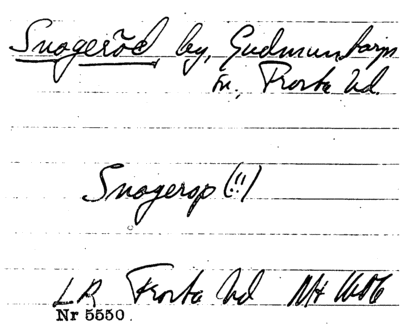 Snogeröd, by, Gudmuntorps
sn, Frosta hd.
Snogerop (!!)
LR Frosta hd
Nr 5550